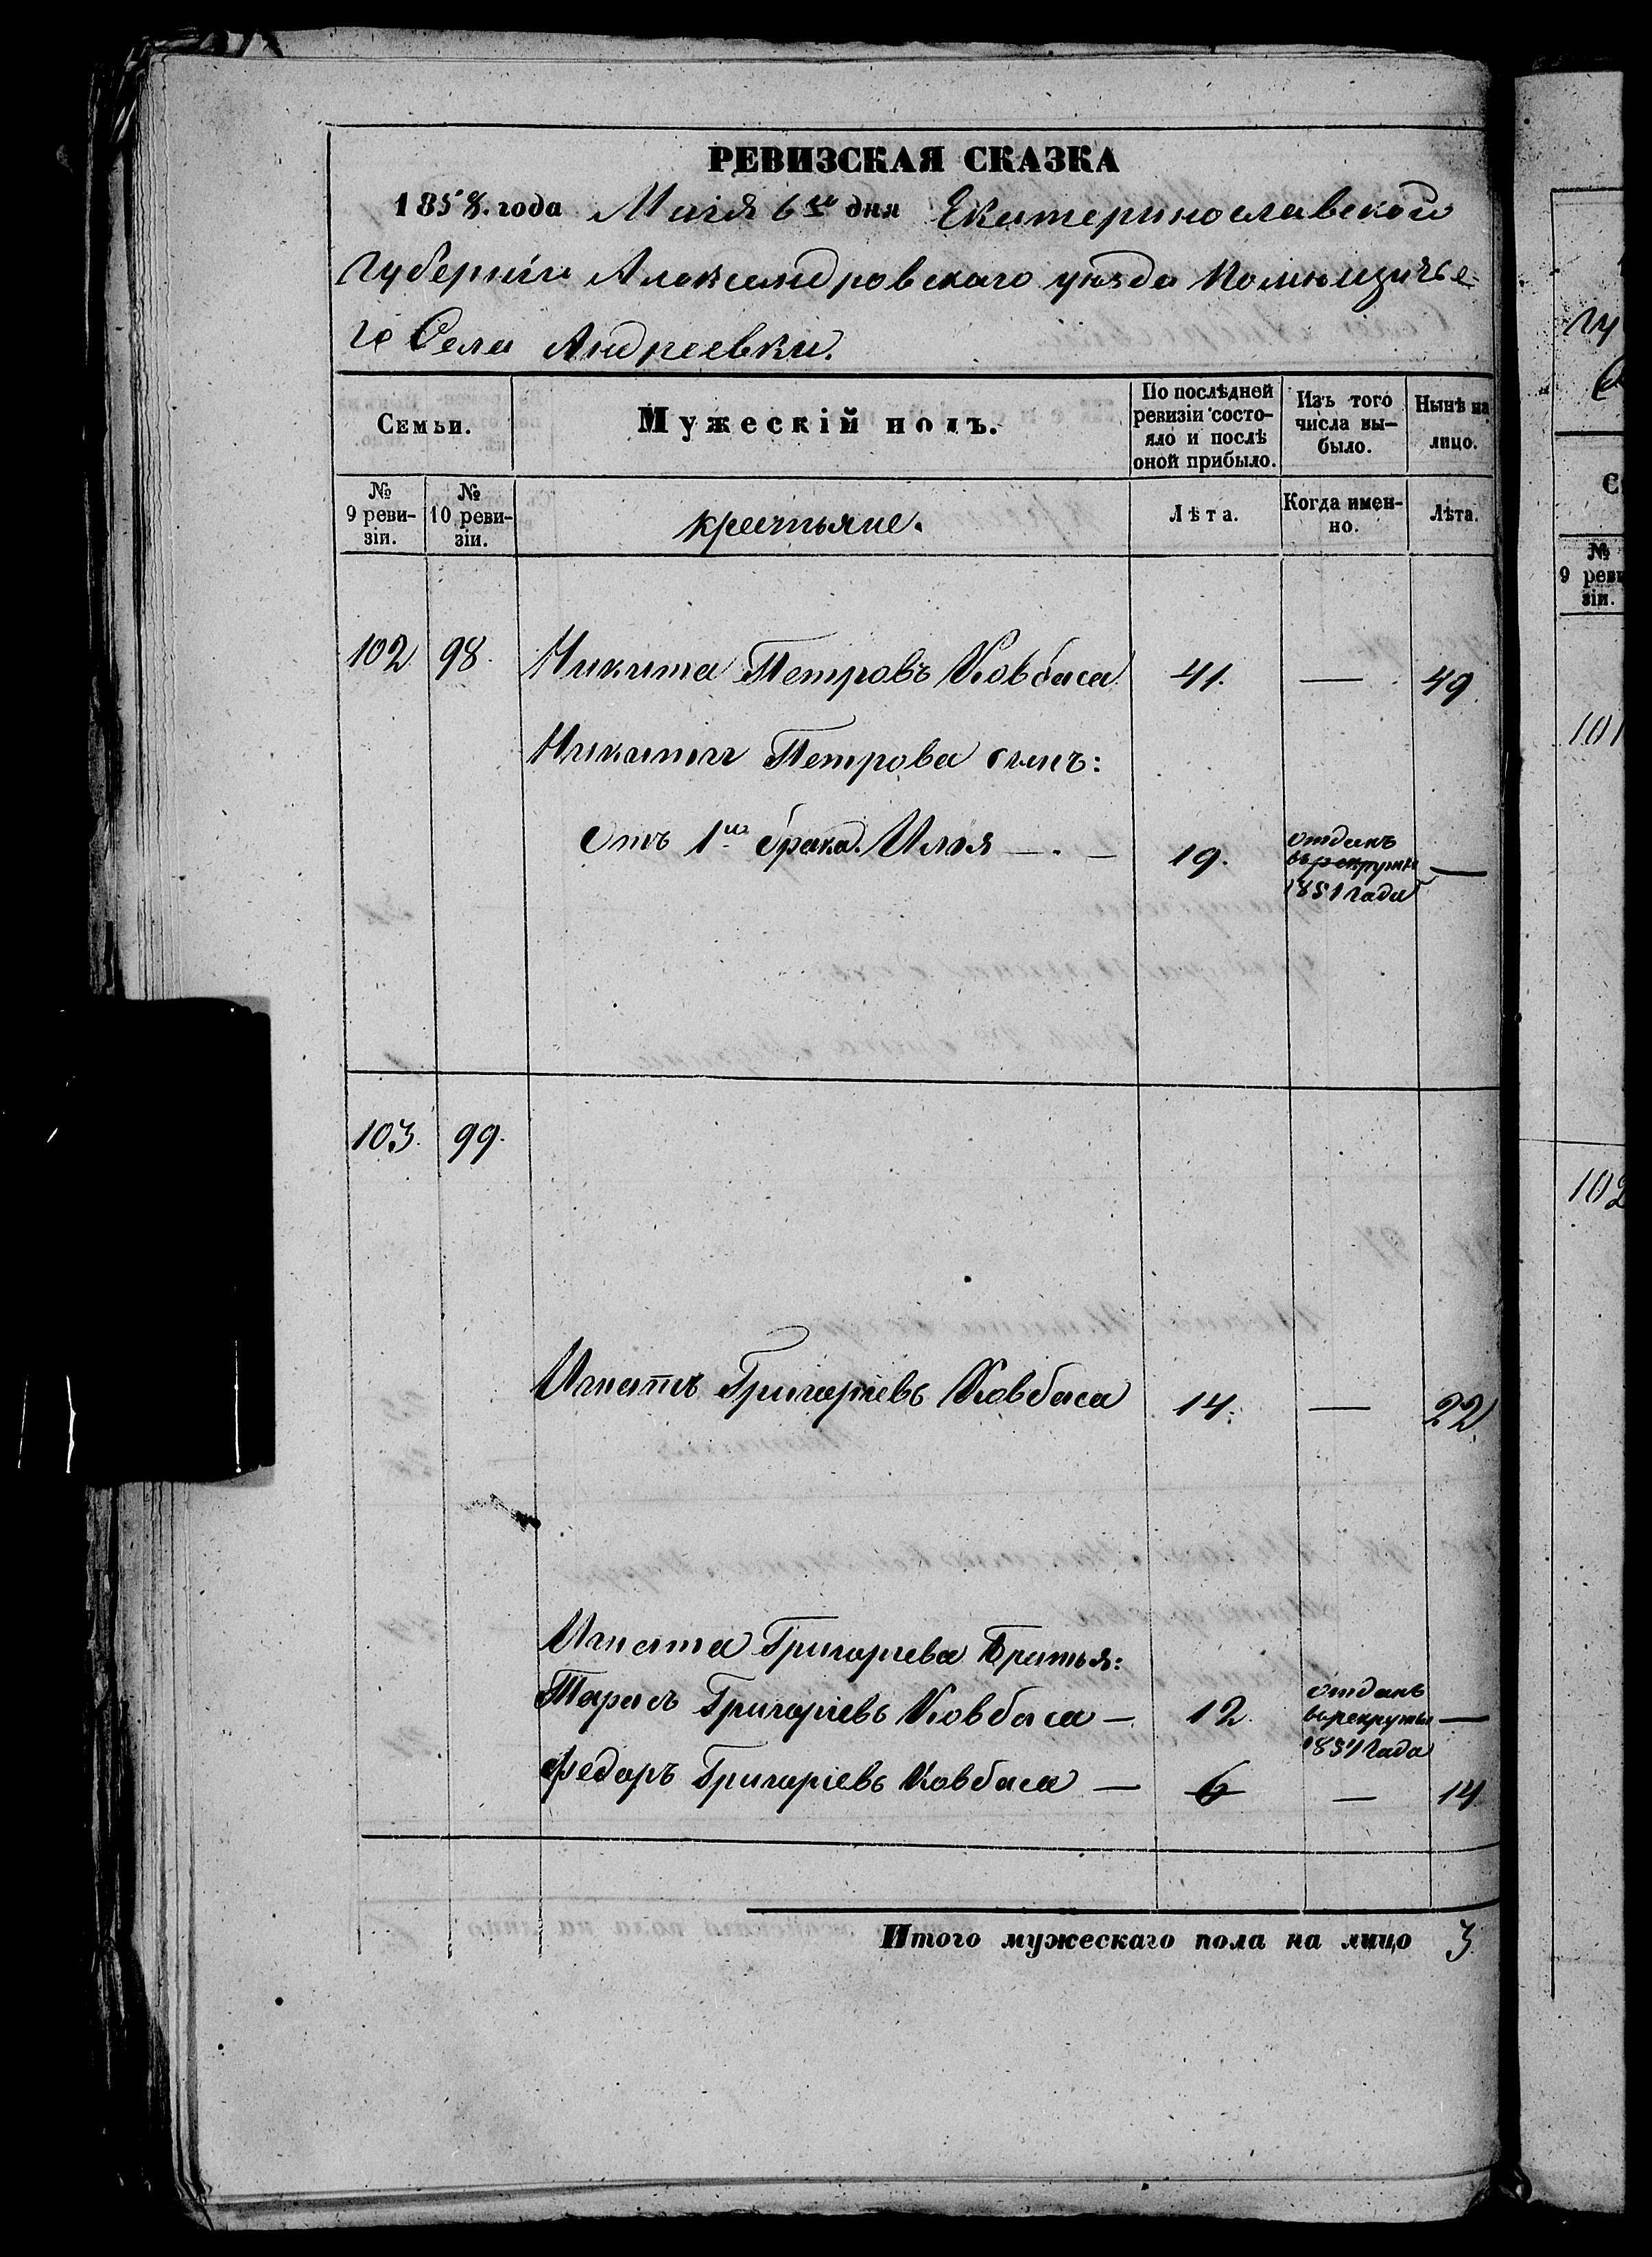 РЕВИЗСКАЯ СКАЗКА
1858. года Маія 6го дня Екатеринославской
Губерніи Александровскаго уѣзда Помѣщичье-
го Села Андреевки.
Семьи.
Мужескій полъ.
По послѣдней
ревизіи состо-
яло и послѣ
оной прибыло.
Изъ того
числа вы-
было.
Нынѣ на
лицо.
№
9 реви-
зіи.
№
10 реви-
зіи.
крестьяне.
Лѣта.
Когда имен-
но.
Лѣта.
102 98. Никита Петровъ Ковбаса 41. — 49.
Никиты Петрова сынъ:
Отъ 1го брака Илья — . — 19. отданъ
въ рекруты —
1851 года
103. 99.
Игнатъ Григоріевъ Ковбаса 14. — 22.
Игната Григоріева Братья:
Тарасъ Григоріевъ Ковбаса — 12. отданъ
въ рекруты —
1851 года
Федоръ Григоріевъ Ковбаса — 6 — 14
Итого мужескаго пола на лицо 3.
№
9 реви
зіи.
101
102